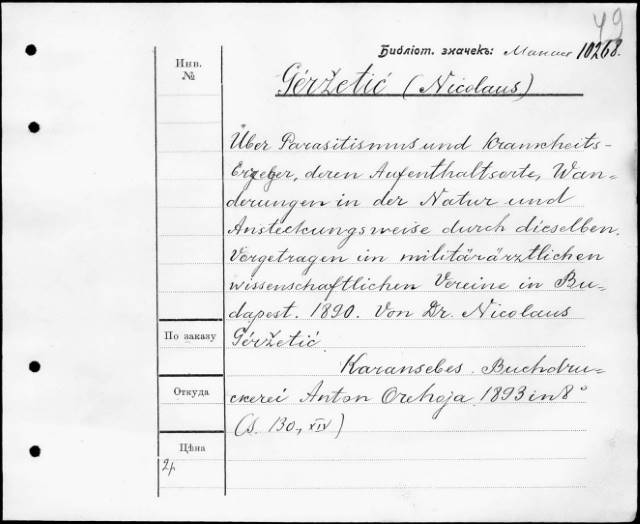 49
Библіот. значекъ: Манас 10268.
Инв.
№
Géržetić (Nicolaus)
Über Parasitismus und Krancheits-
Erzeger, deren Aufenthaltsorte, Wan-
derungen in der Natur und
Ansteckungsweise durch dieselben.
Vorgetragen im militärärztlichen
wissenschaftlichen Vereine in Bu-
dapest. 1890. Von Dr. Nicolaus
По заказу
Géržetić
Karansebes. Buchdru-
Откуда
ckerei Anton Orehoja 1893 in 8°
(S. 130, XIV)
Цѣна